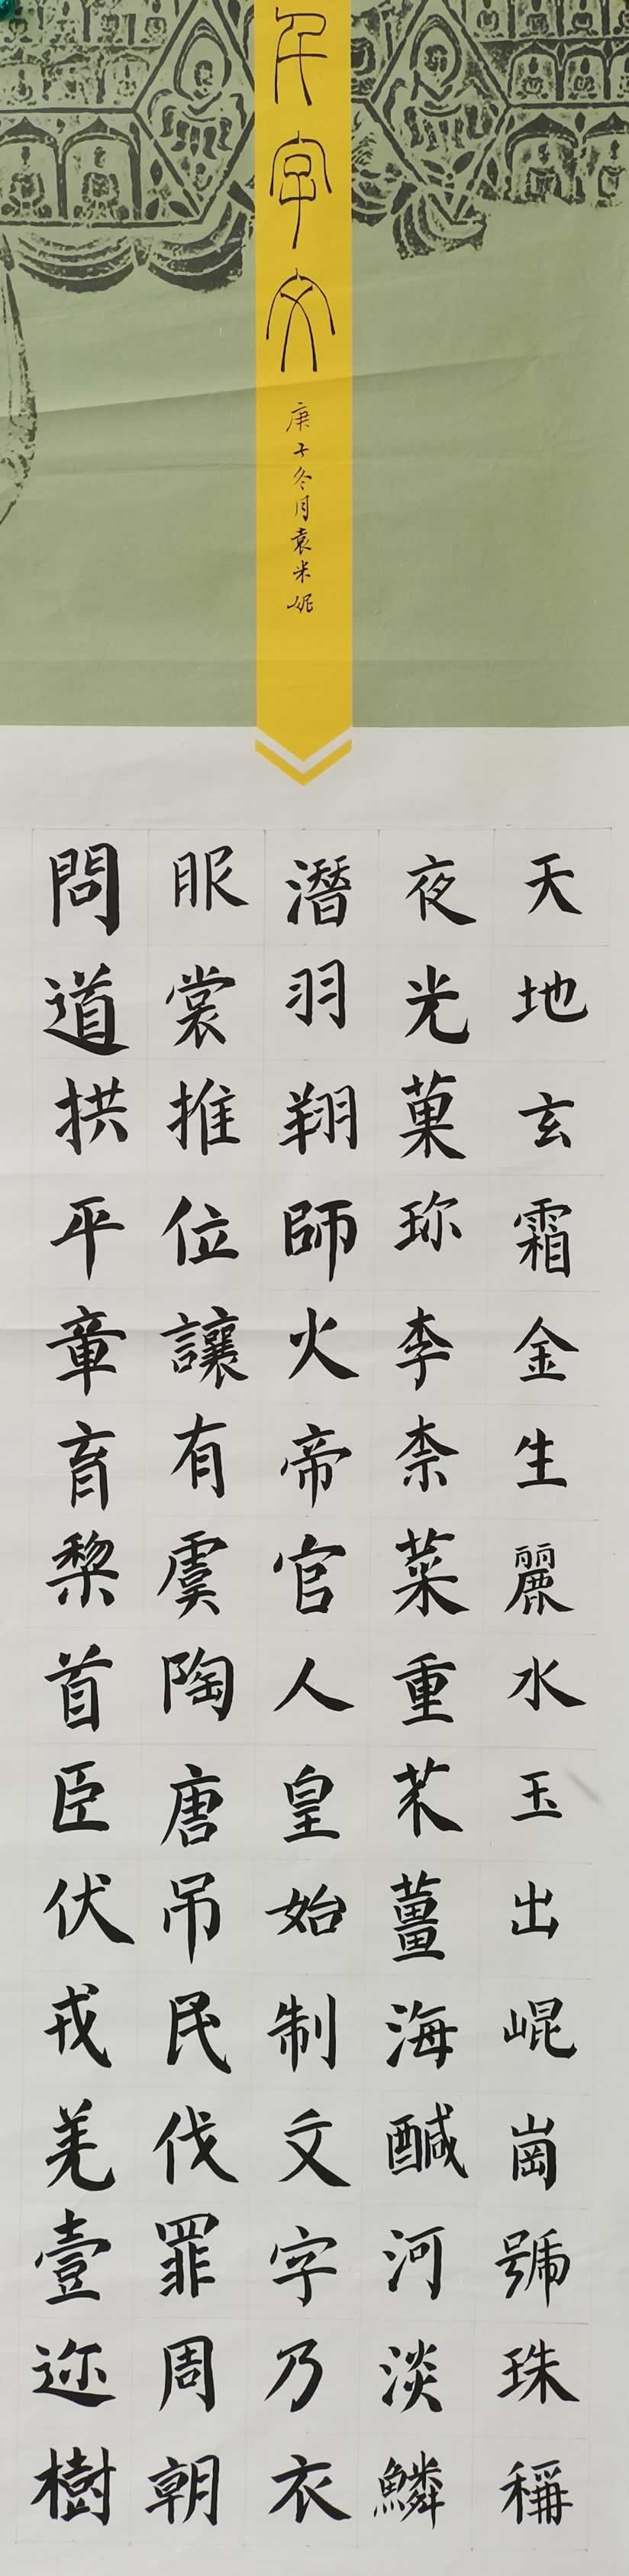 千字文
庚子冬月袁米妮
天地玄霜金生麗水玉出崐崗號珠稱
夜光菓珎李柰菜重芥薑海醎河淡鱗
潛羽翔師火帝官人皇始制文字乃衣
服裳推位讓有虞陶唐吊民伐罪周朝
問道拱平章育黎首臣伏戎羌壹迩樹